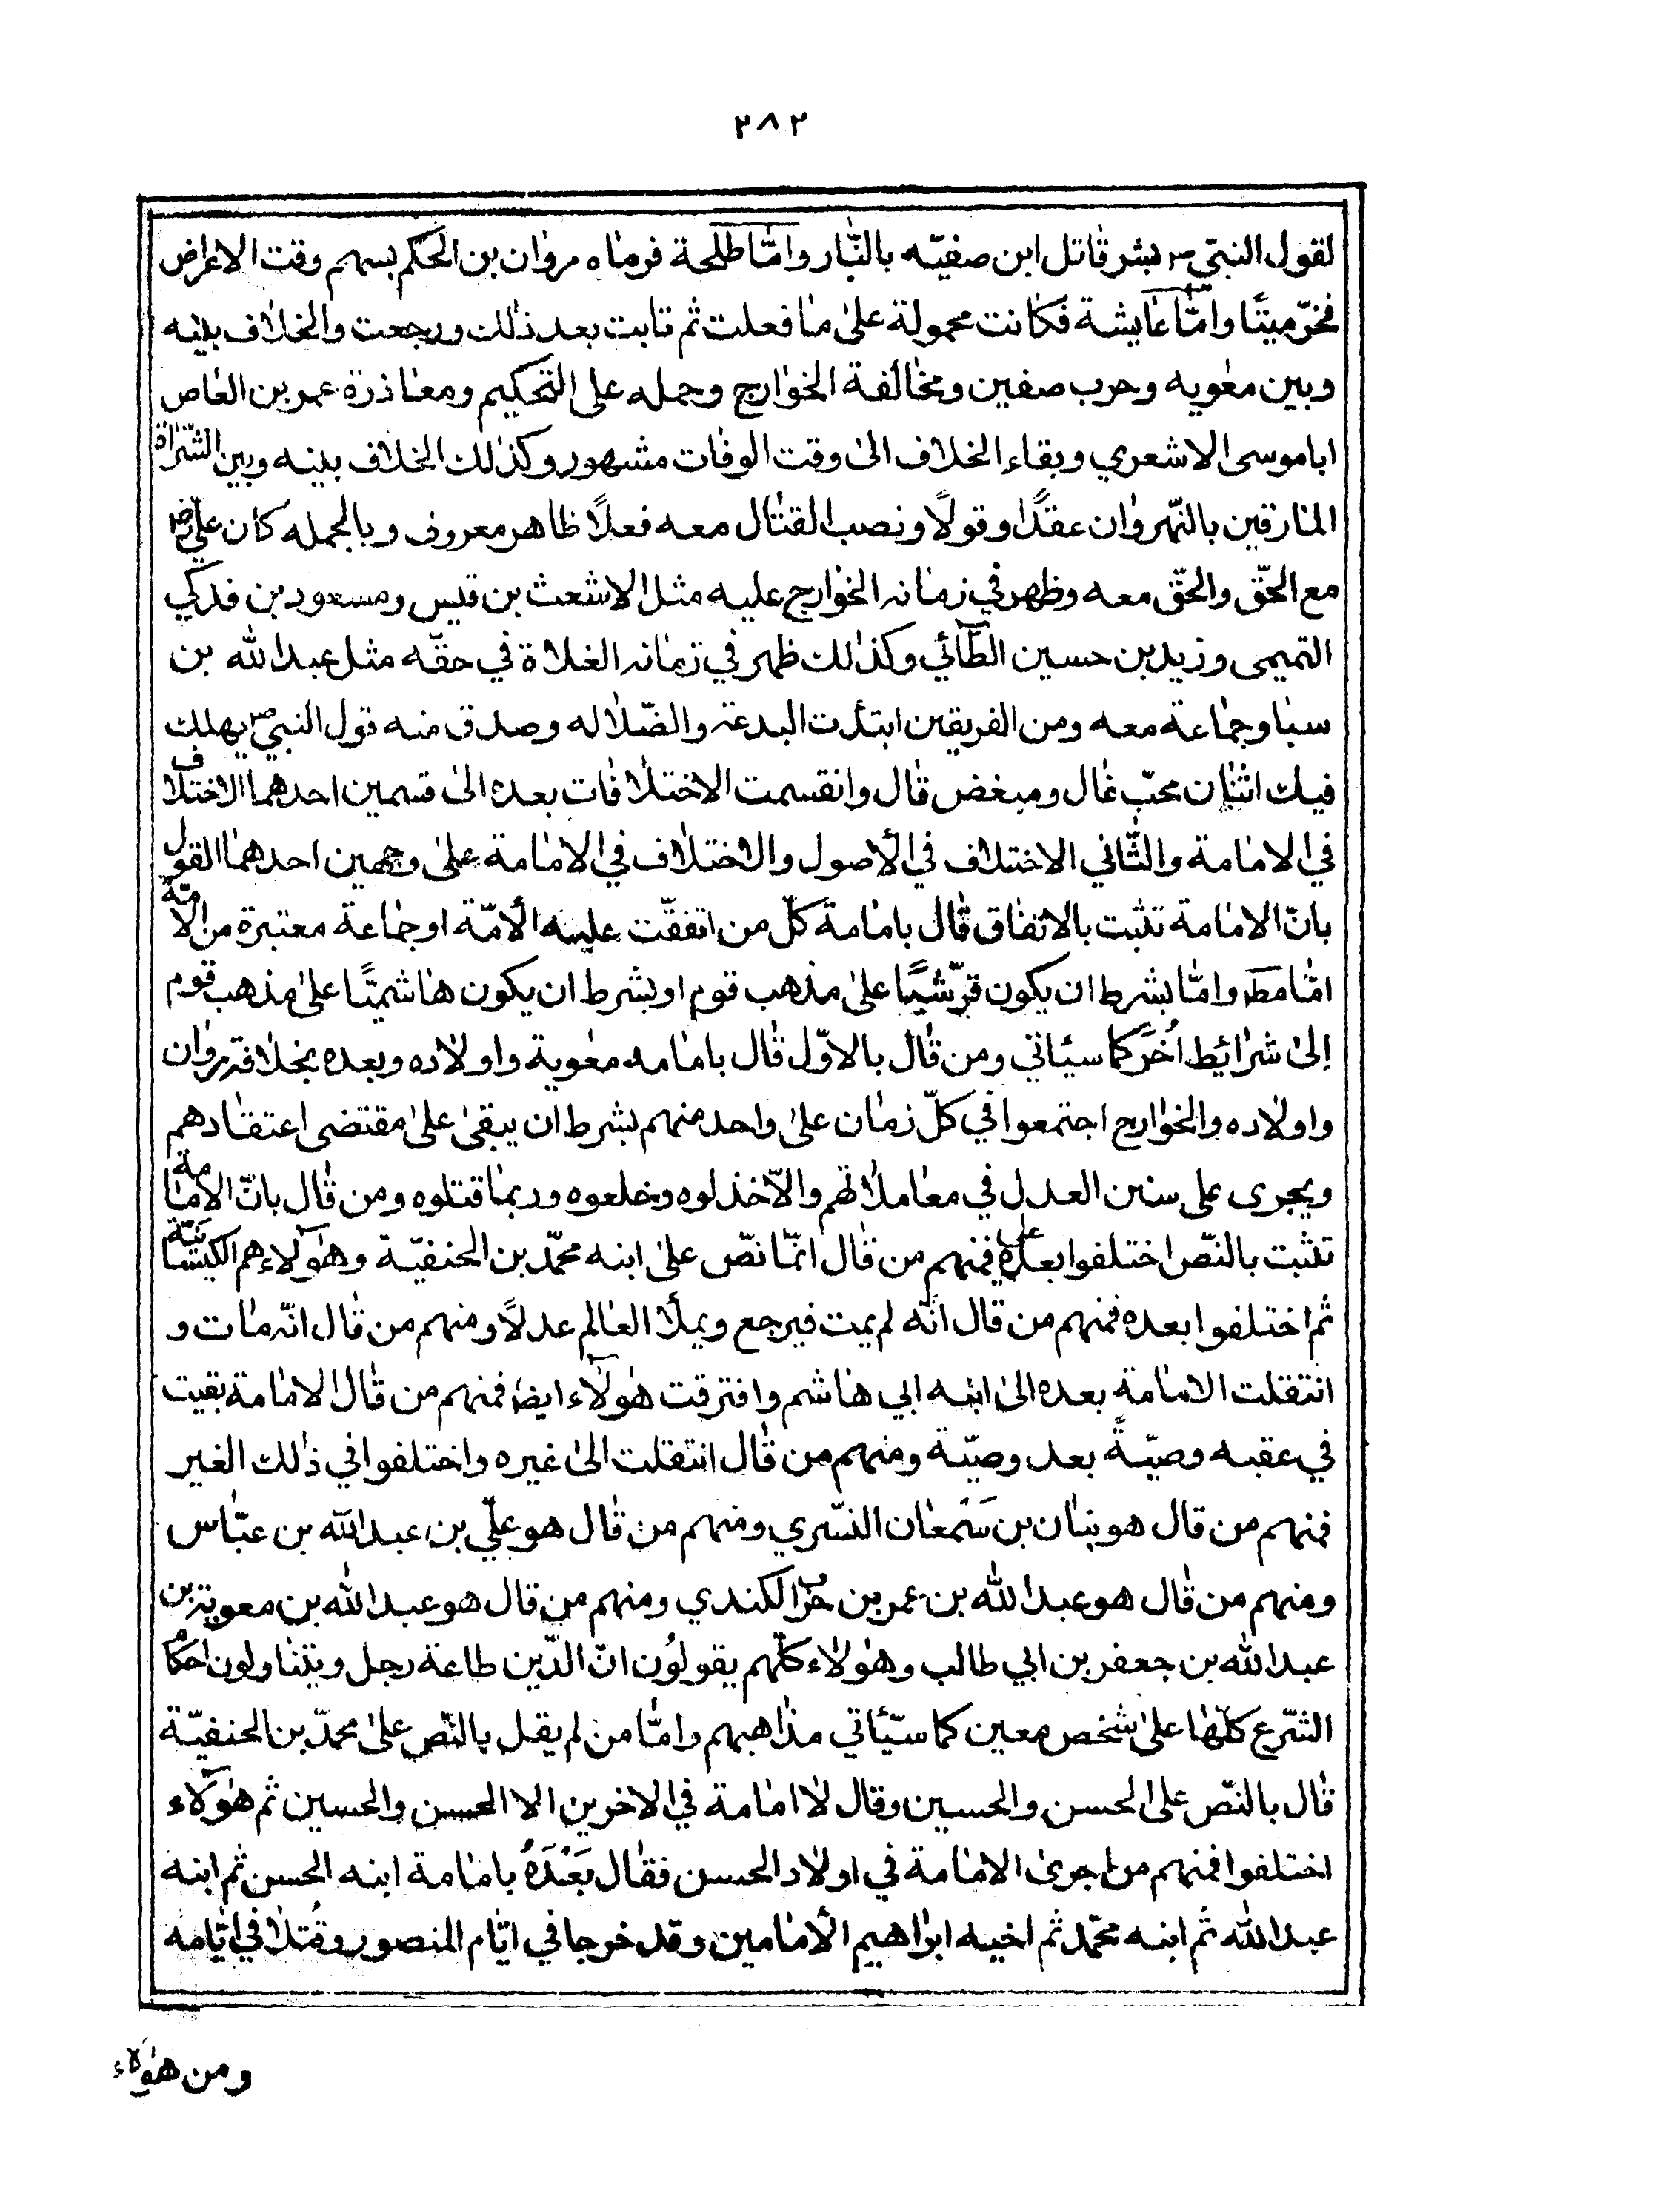 ٢٨٢
لقول النبيّ ص بشر قاتل ابن صفيّه بالنّار وامّا طلحة فرماه مروان بن الحكم بسهم وقت الاعراض
فخرّ ميتًا وامّا عايشة فكانت محمولة على ما فعلت ثم تابت بعد ذلك ورجعت والخلاف بينه
وبين معويه وحرب صفين ومخالفة الخوارج وحمله على التحكيم ومعاذرة عمر بن العاص
اباموسى الاشعري وبقاء الخلاف الى وقت الوفات مشهور وكذلك الخلاف بينه وبين الشّراة
المارقين بالنّهروان عقدًا وقولًا ونصب القتال معه فعلًا ظاهر معروف وبالجمله كان عليّ رض
مع الحقّ والحقّ معه وظهر في زمانه الخوارج عليه مثل الاشعث بن قيس ومسعود بن فدكي
التميمى وزيد بن حسين الطّائي وكذلك ظهر في زمانه الغلاة في حقّه مثل عبد الله بن
سبا وجماعة معه ومن الفريقين ابتدأت البدعة والضّلاله وصدق منه قول النبيّ ص يهلك
فيك اثنان محبّ غال ومبغض قال وانقسمت الاختلافات بعده الى قسمين احدهما الاختلاف
في الامامة والثّاني الاختلاف في الأصول والاختلاف في الامامة على وجهين احدهما القول
بانّ الامامة تثبت بالاتفاق قال بامامة كلّ من اتفقّت عليه الأمّة او جماعة معتبرة من الامّة
امّا مط وامّا بشرط ان يكون قرّشيًا على مذهب قوم او بشرط ان يكون هاشميًّا على مذهب قوم
إلى شرائيط اُخَر كما سيئاتي ومن قال بالاوّل قال بامامه معوية واولاده وبعده بخلافة مروان
واولاده والخوارج اجتمعوا في كلّ زمان على واحد منهم بشرط ان يبقى على مقتضى اعتقادهم
ويجرى على سنن العدل في معاملاتهم والاّ خذلوه وخلعوه وربما قتلوه ومن قال بانّ الامامة
تثبت بالنصّ اختلفوا بعد علي فمنهم من قال انّما نصّ على ابنه محمّد بن الحنفيّة وهؤلاء هم الكيسانيّة
ثم اختلفوا بعده فمنهم من قال انّه لم يمت فيرجع ويملأ العالم عدلًا ومنهم من قال انّه مات و
انتقلت الامامة بعده الى ابنه ابي هاشم وافترقت هؤلآء ايضا فمنهم من قال الامامة بقيت
في عقبه وصيّةً بعد وصيّة ومنهم من قال انتقلت الى غيره واختلفوا في ذلك الغير
فمنهم من قال هو بنان بن سَمعان النسّري ومنهم من قال هو عليّ بن عبد الله بن عبّاس
ومنهم من قال هو عبد الله بن عمر بن حرب الكندي ومنهم من قال هو عبد الله بن معوية بن
عبد الله بن جعفر بن ابي طالب وهؤلاء كلّهم يقولُون انّ الدّين طاعة رجل ويتناولون احكام
الشّرع كلّها على شخص معين كما سيّئاتي مذاهبهم وامّا من لم يقل بالنّص على محمّد بن الحنفيّة
قال بالنّص على الحسن والحسين وقال لا امامة في الاخرين الا الحسن والحسين ثم هؤلآء
اختلفوا فمنهم من اجرى الامامة في اولاد الحسن فقال بَعْدَهُ بامامة ابنه الحسن ثم ابنه
عبد الله ثم ابنه محمّد ثم اخيه ابراهيم الأمامين وقد خرجا في ايّام المنصور وقُتلا في ايّامه
ومن هؤلاء